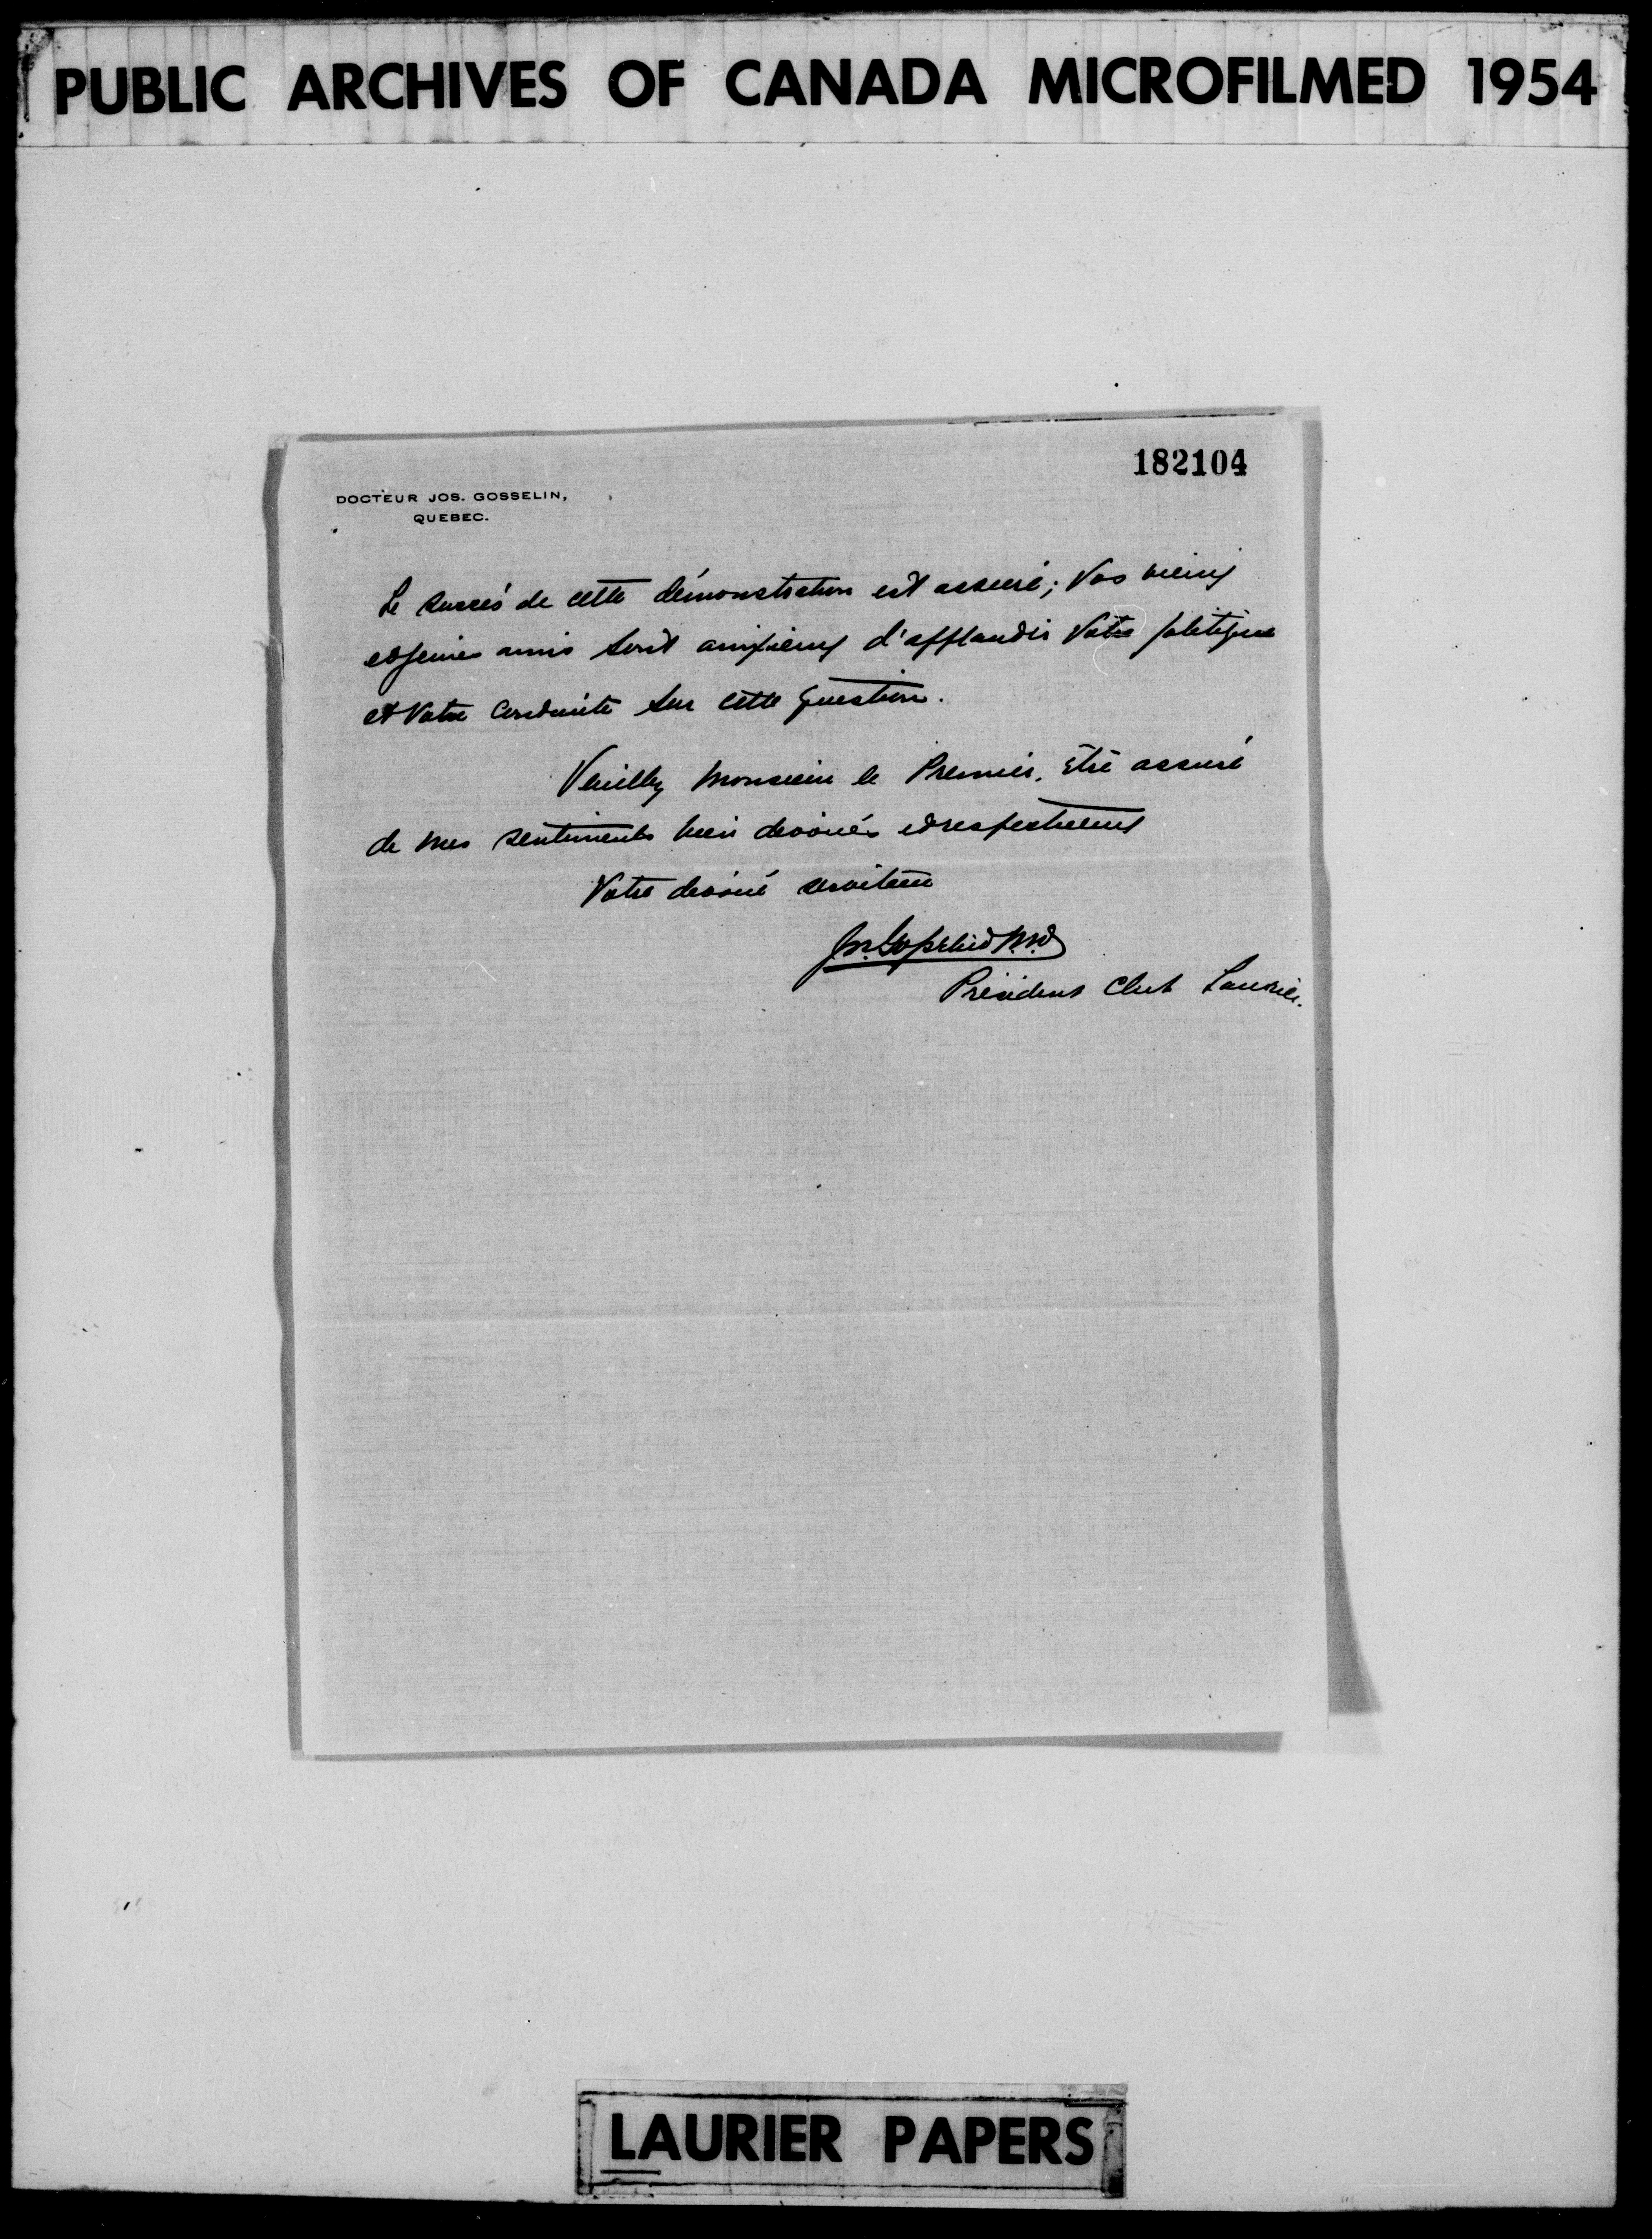 PUBLIC ARCHIVES OF CANADA MICROFILMED 1954
182104
DOCTEUR JOS. GOSSELIN,
QUEBEC.
Le succès de cette démonstration est assuré; Vos vieux
et jeunes amis sont anxieux d'applaudir Votre politique
et Votre Conduite sur cette question.
Veuillez Monsieur le Premier, être assuré
de mes sentiments bien dévoués et respectueux
Votre dévoué serviteur
Jos. Gosselin M.D.
Président Club Laurier.
LAURIER PAPERS